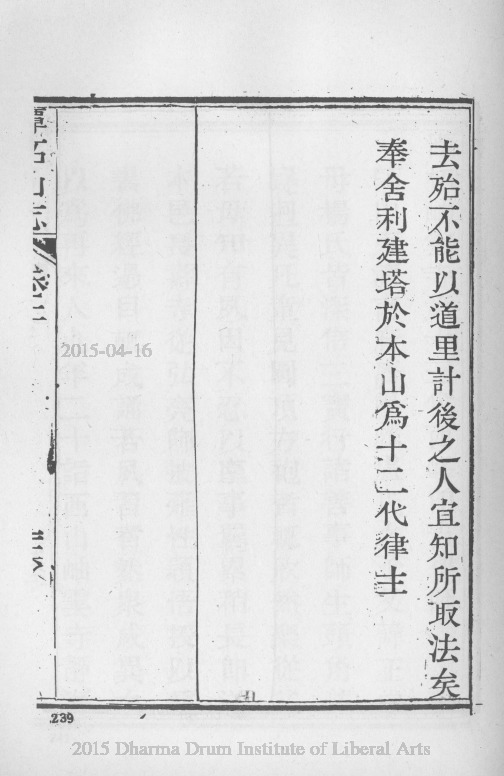 去殆不能以道里計後之人宜知所取法矣
奉舍利建塔於本山爲十二代律主
2015-04-16
239
2015 Dharma Drum Institute of Liberal Arts